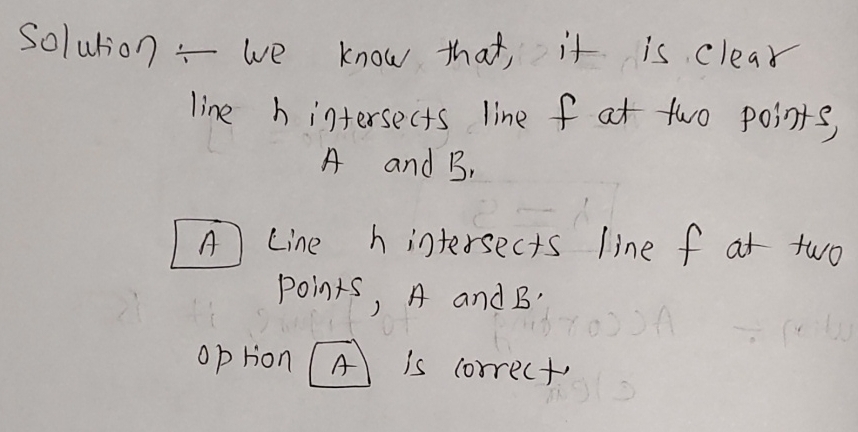 Solution ÷ we know that, it is clear
line h intersects line f at two points,
A and B.
A Line h intersects line f at two
points, A and B.
option A is correct.